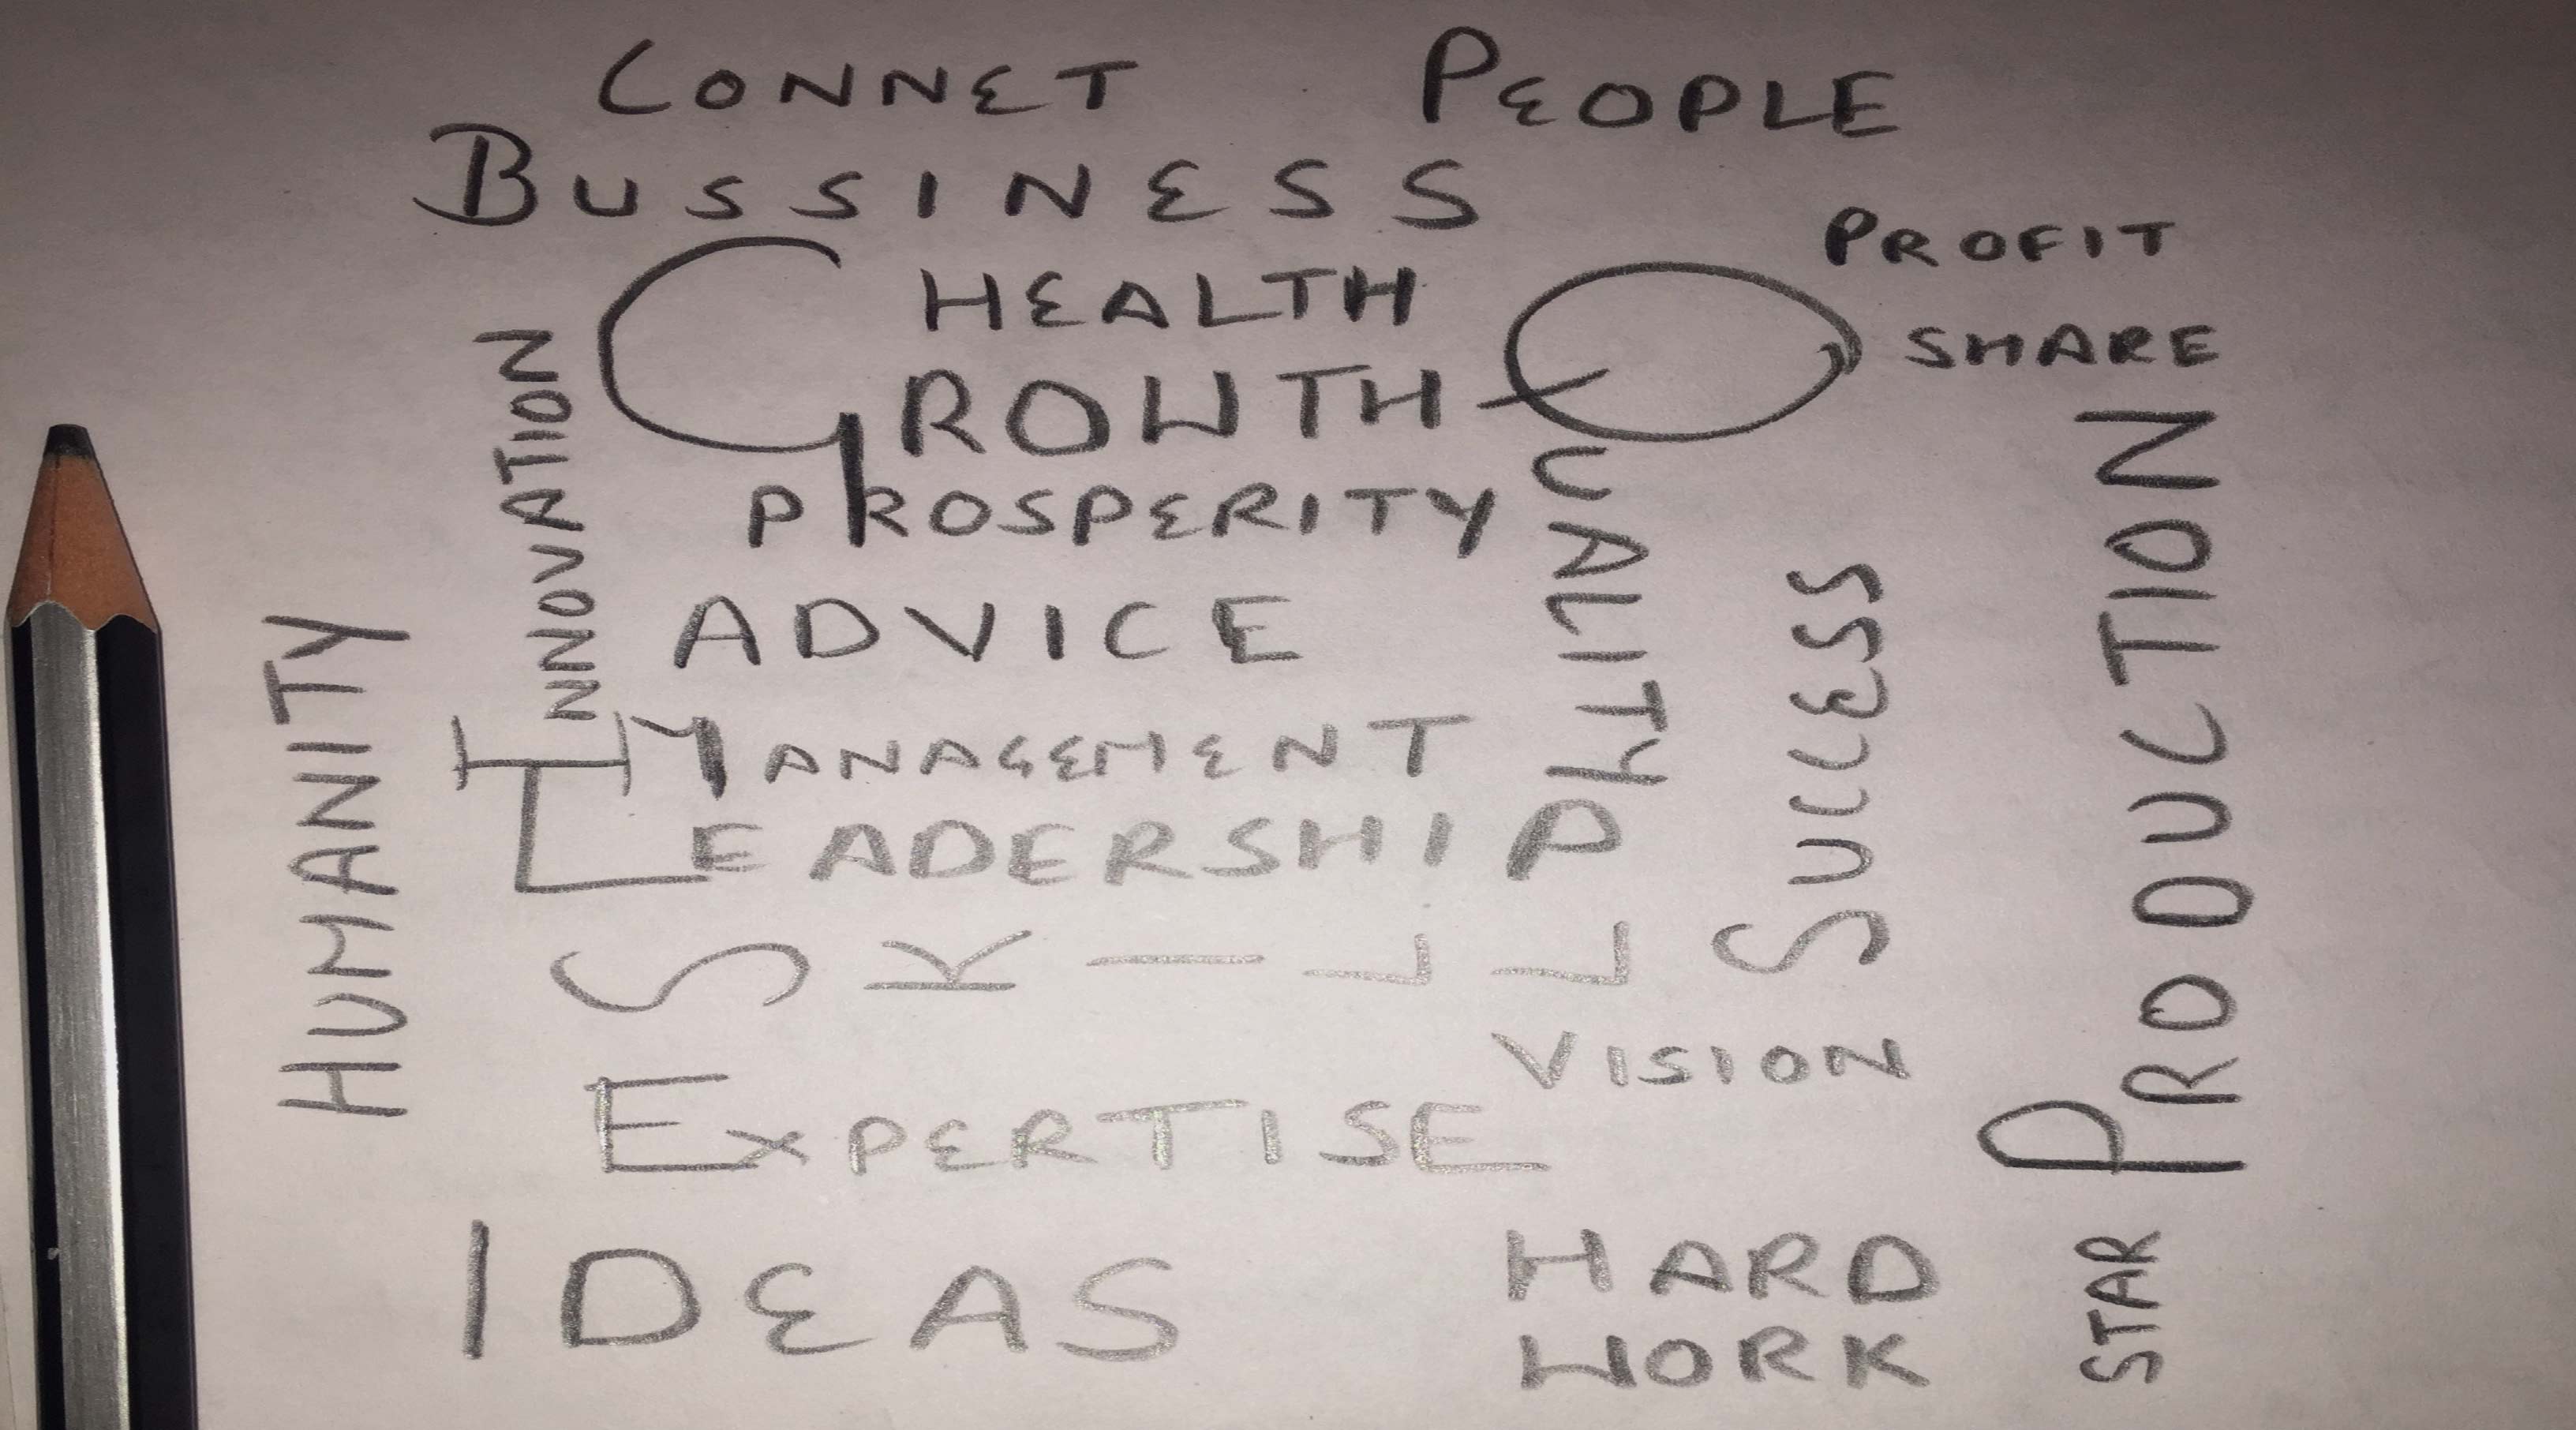 CONNET PEOPLE
BUSSINESS
PROFIT
SHARE
HEALTH
GROWTH
PROSPERITY
ADVICE
MANAGEMENT
LEADERSHIP
SKILL
VISION
EXPERTISE
IDEAS
HARD
WORK
HUMANITY
INNOVATION
QUALITY
SUCCESS
PRODUCTION
STAR